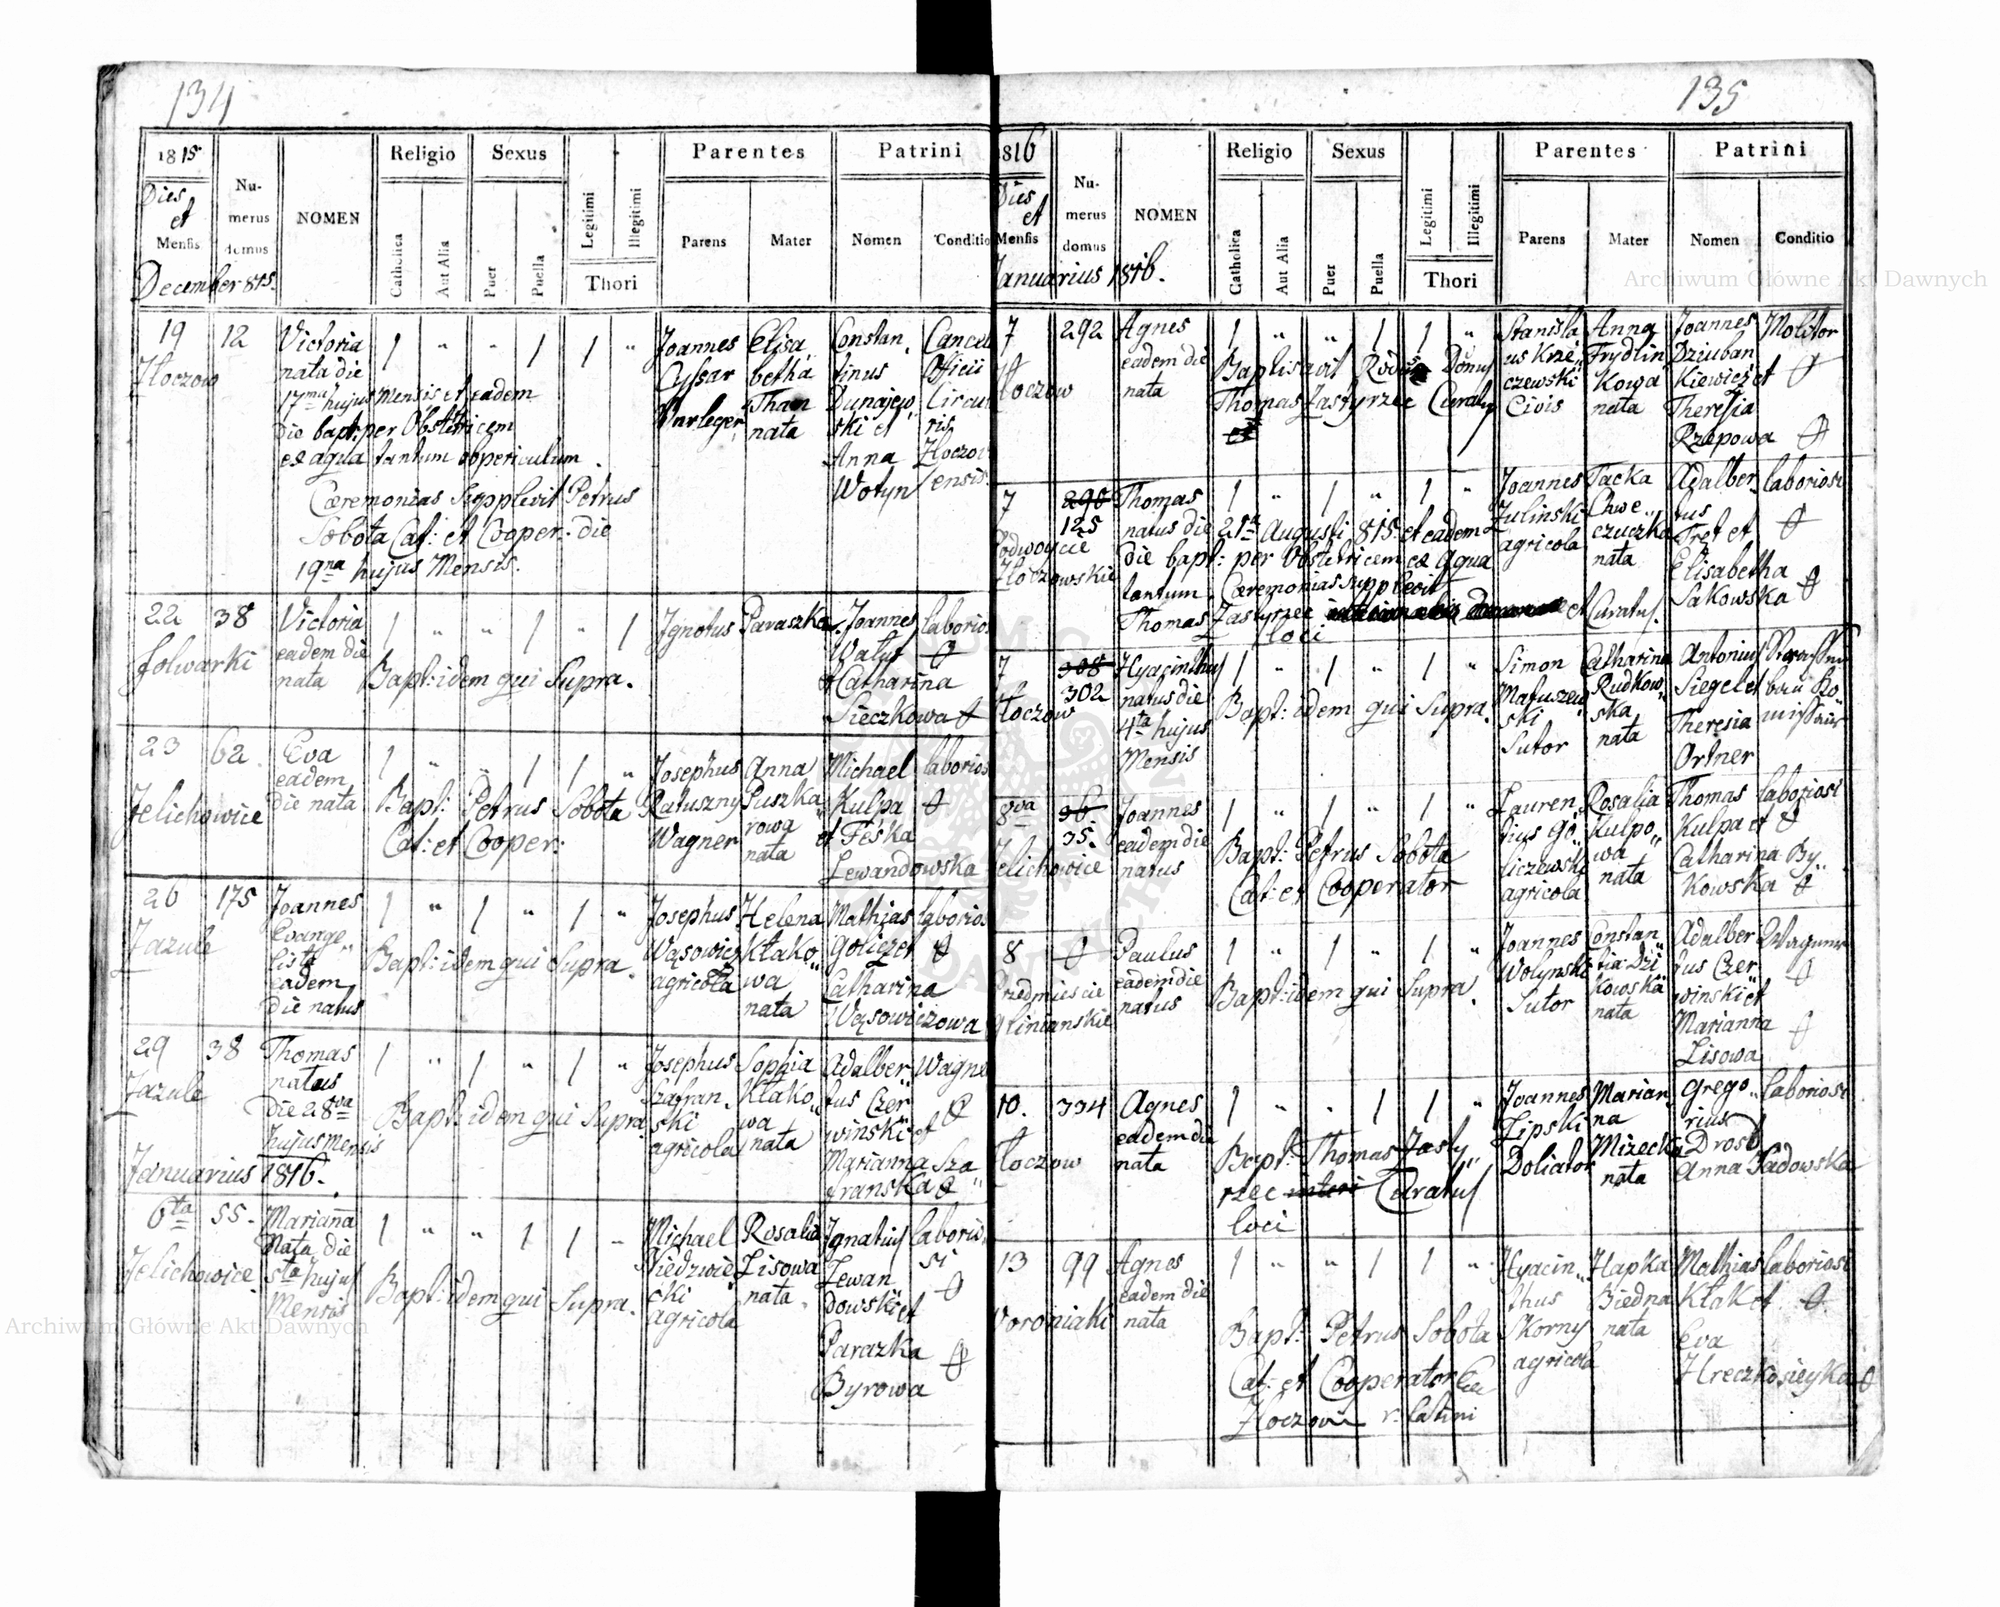 134
1815
Dies
et
Mensis
Numerus
domus
NOMEN
Religio
Catholica
Aut Alia
Sexus
Puer
Puella
Legitimi
Illegitimi
Thori
Parentes
Parens
Mater
Patrini
Nomen
Conditio
December 815.
19
Zloczow
12
Victoria
nata die
17ma hujus Mensis et eadem
die bapt: per Obstetricem
ex aqua tantum ob periculum.
Cæremonias Supplevit Petrus
Sobota Cat: et Cooper: die
19na hujus Mensis.
Joannes
Cyssar
Elisa
betha
nata
Constan,
tinus
Dunajew,
ski et
Anna
Wotyn
Officii
Zloczow
ensis
22
folwarki
38
Victoria
eadem die
nata
Bapt: idem qui Supra.
Ignotus
Paraszka
Joannes
et Catharina
Sieczkowa
23
Jelichowice
62.
Eva
eadem
die nata
Bapt: Petrus Sobota
Cat: et Cooper:
Josephus
Ratuszny
Wagner
Anna
Puszka"
rowa
nata
Michael
Kulpa
et Feska
Lewandowska
26
Zazule
175
Joannes
Evange"
lista
eadem
die natus
Bapt: idem qui Supra.
Josephus
Wąsowicz
agricola
Helena
Kłako"
wa
nata
Mathias
Catharina
Wąsowiczowa
29
Zazule
38
Thomas
natus
die 28va
hujus Mensis
Bapt: idem qui Supra
Josephus
Szafran,
ski
agricola
Sophia
Kłako"
wa
nata
Adalber"
tus Czer"
winski et
Marianna Sza"
franska
Januarius 1816.
6ta
Jelichowice
55.
Marianna
Nata die
5ta hujus
Mensis
Bapt: idem qui Supra.
Michael
Niedzwie"
cki
agricola
Rosalia
Lisowa
nata
Ignatius
Lewan
dowski et
Parazka
Byrowa
laborio"
si
135
1816
Dies
et
Mensis
Numerus
domus
NOMEN
Religio
Catholica
Aut Alia
Sexus
Puer
Puella
Legitimi
Illegitimi
Thori
Parentes
Parens
Mater
Patrini
Nomen
Conditio
Januarius 1816.
7
Zloczow
292
Agnes
eadem die
nata
Thomas Zastyrzec Curatus
Stanisla
us Krze"
czewski
Civis
Anna
Frydlin
kowa
nata
Joannes
Dziuban
kiewicz et
Theresia
Rzepowa
Molitor
7
Zloczowskie
125
Thomas
natus die 21a Augusti 815 et eadem
die bapt: per Obstetricem ex Aqua
tantum. Cæremonias supplevit
Thomas Zastyrzec et Curatus
loci
Joannes
Zulinski
agricola
Tacka
Chwe"
czuczka
nata
Adalber"
tus
Fret et
Elisabetha
Sakowska
laboriosi
7
Zloczow
302
Hyacinthus
natus die
4ta hujus
Mensis
Bapt: idem qui Supra.
Simon
Matuszew"
ski
Sutor
Catharina
Rudkow"
ska
nata
Antonius
Siegel et
Theresia
Ortner
8va
Jelichowice
35.
Joannes
eadem die
natus
Bapt: Petrus Sobota
Cat: et Cooperator
Lauren"
tius Go"
liczewski
agricola
Rosalia
Kulpo"
wa
nata
Thomas
Kulpa et
Catharina By"
kowska
laboriosi
8
Przedmiescie
Glinianskie
Paulus
eadem die
natus
Bapt: idem qui Supra.
Joannes
Wolynski
Sutor
Constan"
tia Dzi"
kowska
nata
Adalber"
tus Czer"
winski et
Marianna
Lisowa
Wagner
10.
Zloczow
334
Agnes
eadem die
nata
Bapt: Thomas Zasty"
rzec Curatus
loci
Joannes
Lipski
Doliator
Marian,
na
Mizecka
nata
Grego"
rius
Drost
Anna Sadowska
laboriosi
13
Woroniaki
99
Agnes
eadem die
nata
Bapt: Petrus Sobota
Cat: et Cooperator
r: latini
Hyacin"
thus
Skorny
agricola
Hapka
Biedna
nata
Mathias
Kłak et
Eva
Hreczkosieyka
laboriosi
Archiwum Główne Akt Dawnych
Archiwum Główne Akt Dawnych